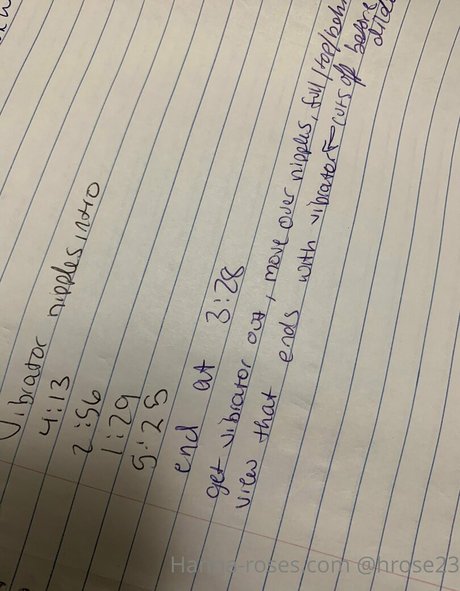 Vibrator nipples intro
4:13
2:56
1:29
5:25
end at 3:28
get vibrator out, move over nipples, full/top/
view that ends with vibrator cuts off before
Hanna-roses.com @hrose23